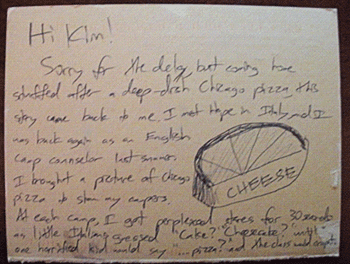 Hi Kim!
Sorry for the delay, but coming home
stuffed after a deep-dish Chicago pizza, this
story came back to me. I met Hope in Italy and I
was back again as an English
camp counselor last summer.
I brought a picture of Chicago
pizza to show my campers.
CHEESE
At each camp, I got perplexed stares for 30 seconds
as little Italians guessed "Cake?" "Cheesecake?" until
one horrified kid would say "...pizza?" and the class would erupt.